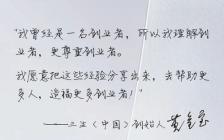 "我曾经是一名创业者，所以我理解创
业者，更尊重创业者。
我愿意把这些经验分享出来，去帮助更
多人，造福更多创业者！"
——三立（中国）创始人